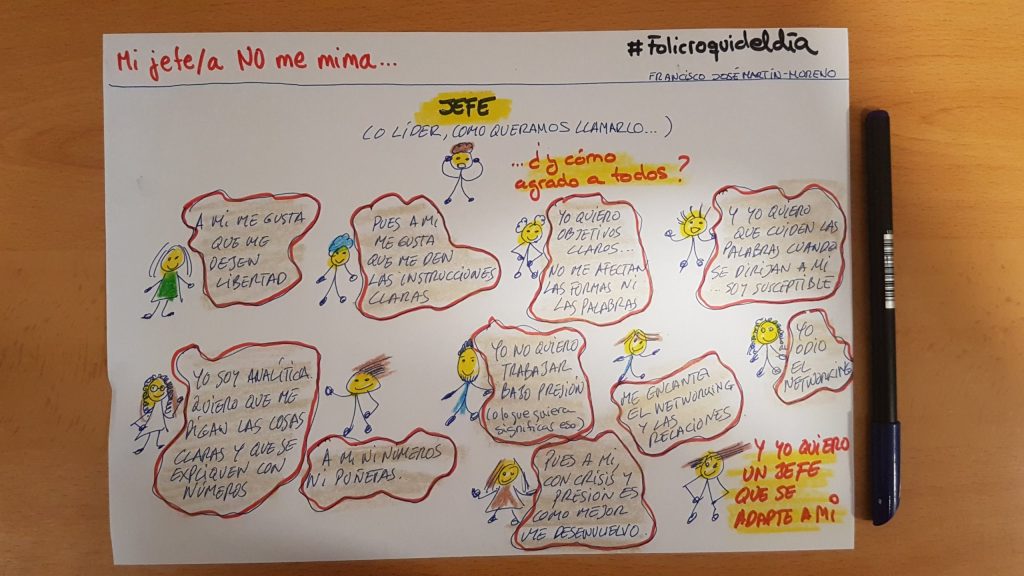 Mi jefe/a NO me mima...
#Folicroquideldía
FRANCISCO JOSÉ MARTÍN-MORENO
JEFE
(O LÍDER, COMO QUERAMOS LLAMARLO...)
...¿y cómo
agrado a todos?
A MI ME GUSTA
QUE ME
DEJEN
LIBERTAD
PUES A MI
ME GUSTA
QUE ME DEN
LAS INSTRUCCIONES
CLARAS
YO QUIERO
OBJETIVOS
CLAROS...
NO ME AFECTAN
LAS FORMAS NI
LAS PALABRAS
Y YO QUIERO
QUE CUIDEN LAS
PALABRAS CUANDO
SE DIRIJAN A MI
...SOY SUSCEPTIBLE
YO SOY ANALÍTICA
QUIERO QUE ME
DIGAN LAS COSAS
CLARAS Y QUE SE
EXPLIQUEN CON
NÚMEROS
A MI NI NÚMEROS
NI PUÑETAS.
YO NO QUIERO
TRABAJAR
BAJO PRESIÓN
(o lo que quiera
significar eso)
ME ENCANTA
EL NETWORKING
Y LAS
RELACIONES
YO
ODIO
EL
NETWORKING
PUES A MI,
CON CRISIS Y
PRESIÓN ES
COMO MEJOR
ME DESENVUELVO
Y YO QUIERO
UN JEFE
QUE SE
ADAPTE A MI